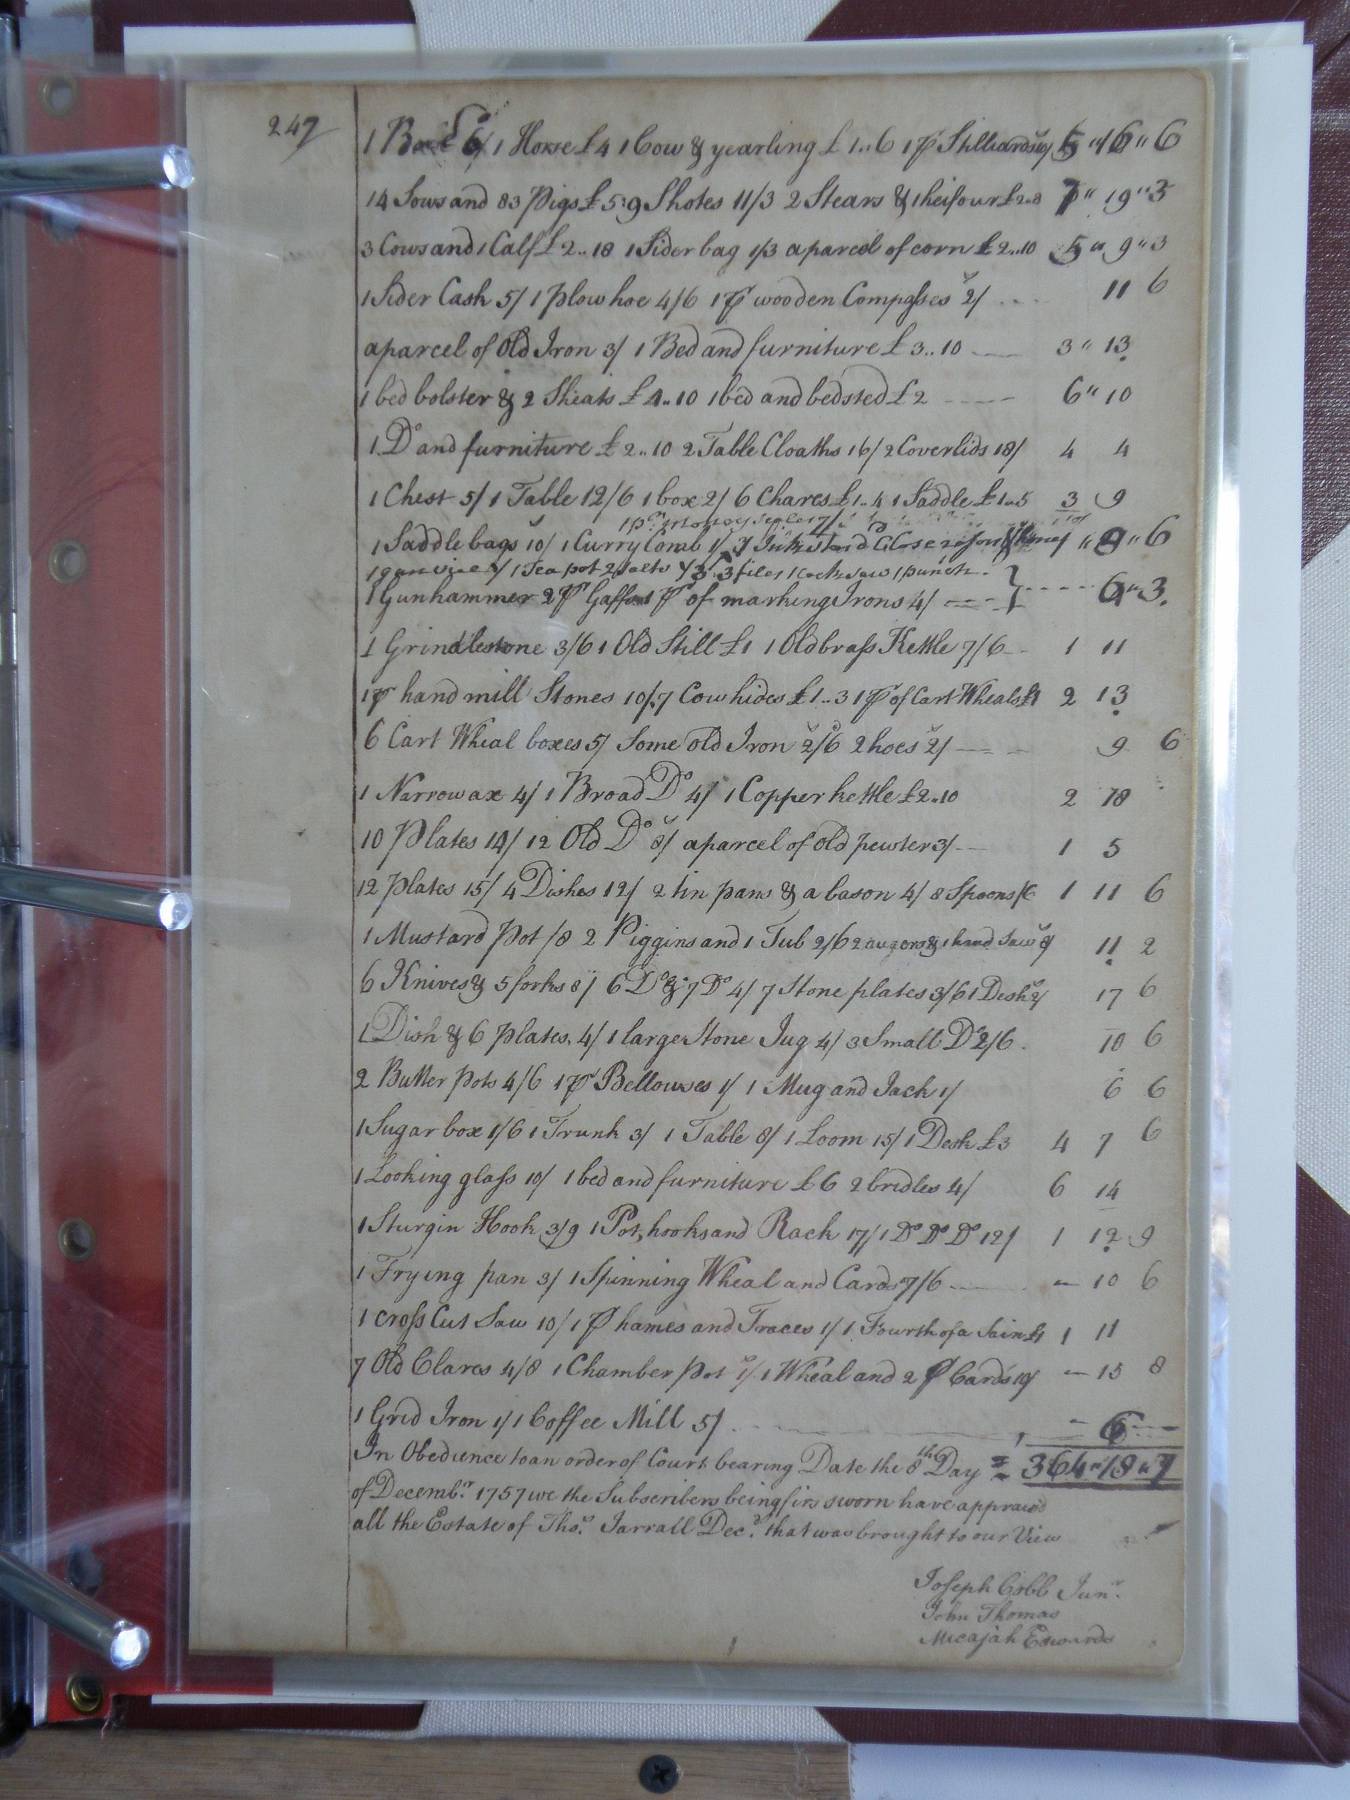 247
1 Horse £4 1 Cow & yearling £1..6 1 pr Stilliards 5 " 16 " 6
14 Sows and 83 Pigs £5:9 Shotes 11/3 2 Stears & 1 heifour £2..8 7 " 19 " 3
3 Cows and 1 Calf £2..18 1 Sider bag 1/3 a parcel of corn £2..10 5 " 9 " 3
1 Sider Cask 5/ 1 plow hoe 4/6 1 pr wooden Compasses 2/ 11 6
a parcel of Old Iron 3/ 1 Bed and furniture £3..10 3 " 13
1 bed bolster & 2 Sheats £4..10 1 bed and bedsted £2 6 " 10
1 Do and furniture £2..10 2 Table Cloaths 16/ 2 Coverlids 18/ 4 4
1 Chest 5/ 1 Table 12/6 1 box 2/ 6 Chares £1..4 1 Saddle £1..5 3 9
1 Saddle bags 10/ 1 Curry Comb 1/ " 9 " 6
1 Tea pot 2 Salts 3 files 1 saw 1 punch
1 Gunhammer 2 pr of marking Irons 4/ 6 " 3
1 Grindlestone 3/6 1 Old Still £1 1 Old brass Kettle 7/6 1 11
1 pr hand mill Stones 10/ 7 Cow hides £1..3 1 pr of Cart Wheals £1 2 13
6 Cart Wheal boxes 5/ Some old Iron 2/6 2 hoes 2/ 9 6
1 Narrow ax 4/ 1 Broad Do 4/ 1 Copper kettle £2..10 2 18
10 Plates 14/ 12 Old Do 8/ a parcel of old pewter 3/ 1 5
12 plates 15/ 4 Dishes 12/ 2 tin pans & a bason 4/ 8 Spoons /6 1 11 6
1 Mustard Pot /8 2 Piggins and 1 Tub 2/6 2 augors & 1 hand saw 8/ 11 2
6 Knives & 5 forks 8/ 6 Do & 7 Do 4/ 7 Stone plates 3/6 1 Desk 2/ 17 6
1 Dish & 6 plates 4/ 1 large Stone Jug 4/ 3 Small Do 2/6 10 6
2 Butter Pots 4/6 1 pr Bellowses 1/ 1 Mug and Jack 1/ 6 6
1 Sugar box 1/6 1 Trunk 3/ 1 Table 8/ 1 Loom 15/ 1 Desk £3 4 7 6
1 Looking glass 10/ 1 bed and furniture £6 2 bridles 4/ 6 14
1 Sturgin Hook 3/9 1 Pot, hooks and Rack 17/ 1 Do Do Do 12/ 1 12 9
1 Frying pan 3/ 1 Spinning Wheal and Cards 7/6 10 6
1 cross Cut Saw 10/ 1 pr hames and Traces 1/ 1 Fourth of a Sain £1 1 11
7 Old Clares 4/8 1 Chamber pot 1/ 1 Wheal and 2 pr Cards 10/ 15 8
1 Grid Iron 1/ 1 Coffee Mill 5/ 6
In Obedience to an order of Court bearing Date the 8th Day 364 " 18 " 7
of Decembr 1757 we the Subscribers being firs sworn have appraised
all the Estate of Thos. Jarrall Decd. that was brought to our View
Joseph Cobb Junr.
John Thomas
Micajah Edwards